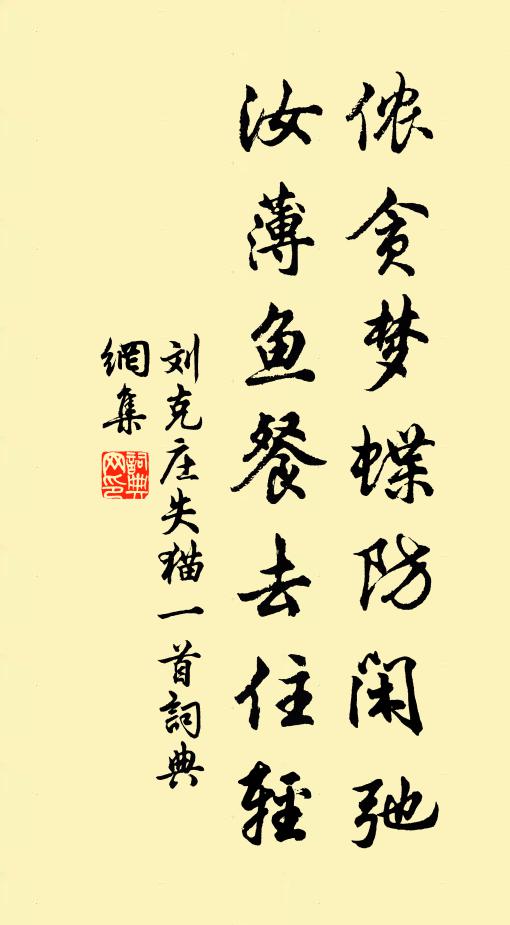 侬贪梦蝶防闲弛
汝薄鱼餐去住轻
刘克庄失猫一首詞典
網集
詞典网印